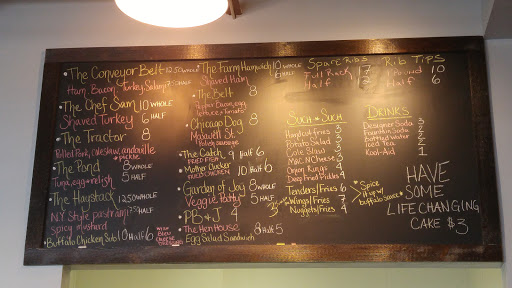 The Conveyor Belt 12.50 whole
Ham, Bacon, Turkey, Salami 7.50 half
The Chef Sam 10 whole
Shaved Turkey 6 half
The Tractor 8
Pulled Pork, coleslaw, andouille
+ pickle
The Pond 8 whole
Tuna, egg + relish 5 half
The Haystack 12.50 whole
N.Y Style pastrami 7.5 half
spicy mustard
Buffalo Chicken Sub 10 half 6 with bleu cheese dressing
The Farm Hamwich 10 whole
Shaved Ham 6 half
The Belt 8
bacon, egg,
lettuce + tomato
Chicago Dog 8
Maxwell St.
Polish sausage
The Catch 9 half 6
Fried Fish
Mother Clucker 10 half 6
Fried Chicken
Garden of Joy 8 whole
Veggie Patty 5 half
PB + J 4 3
The Hen House 8 half 5
Egg Salad Sandwich
Spare Ribs
Full Rack
Half 7
Rib Tips
1 Pound 10
Half 6
Such + Such
Handcut Fries 3
Potato Salad 3
Cole Slaw 3
Mac N Cheese 3
Onion Rings 3
Deep Fried Pickles 4
Tenders/Fries 6
Wings/Fries 7
Nuggets/Fries 4
Spice it up w/ buffalo sauce
Drinks
Designer Soda 3
Fountain Soda 2
Bottled Water 2
Iced Tea 2
Kool-Aid 1
HAVE
SOME
LIFE CHANGING
CAKE $3